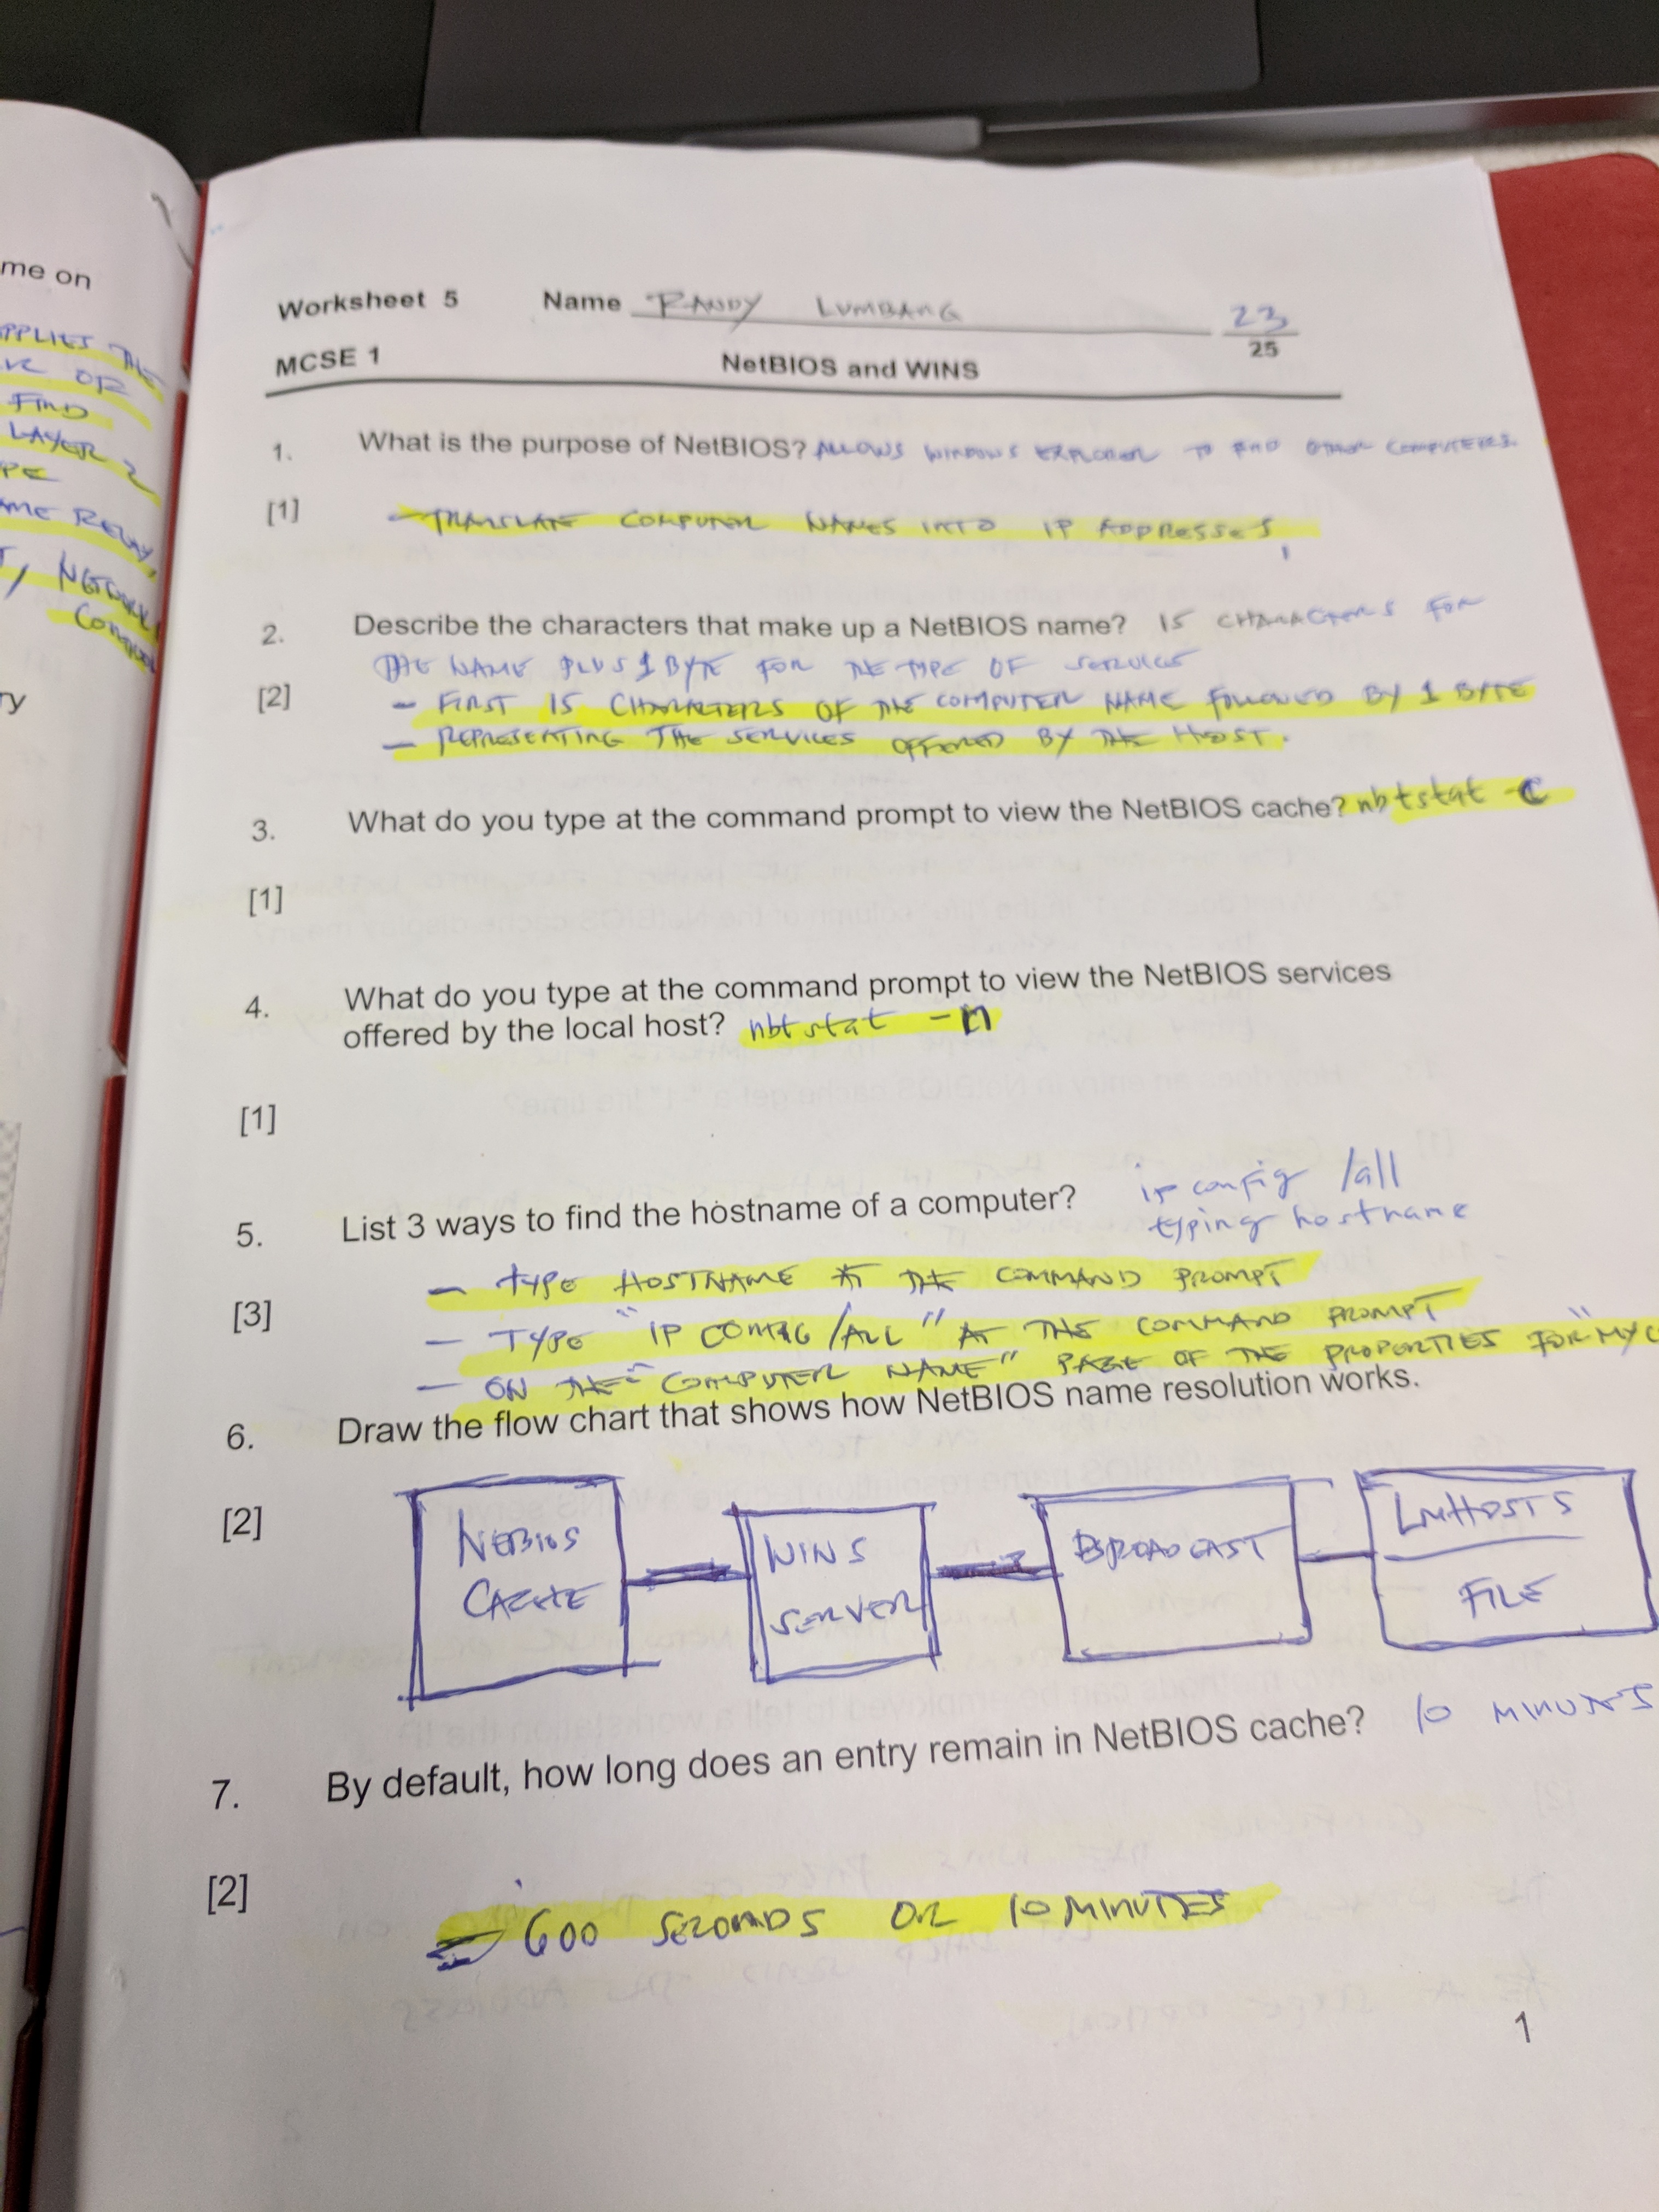 me on
APPLIES THE
OR
FIND
LAYER 2
PE
AME RELAY,
NETWORK
ry
Worksheet 5 Name RANDY LUMBANG 23
25
MCSE 1 NetBIOS and WINS
1. What is the purpose of NetBIOS? ALLOWS WINDOWS EXPLORER TO FIND OTHER COMPUTERS.
[1] - TRANSLATE COMPUTER NAMES INTO IP ADDRESSES,
2. Describe the characters that make up a NetBIOS name? 15 CHARACTERS FOR
THE NAME PLUS 1 BYTE FOR THE TYPE OF SERVICE
[2] - FIRST 15 CHARACTERS OF THE COMPUTER NAME FOLLOWED BY 1 BYTE
- REPRESENTING THE SERVICES OFFERED BY THE HOST.
3. What do you type at the command prompt to view the NetBIOS cache? nbtstat -c
[1]
4. What do you type at the command prompt to view the NetBIOS services
offered by the local host? nbtstat -n
[1]
5. List 3 ways to find the hostname of a computer? ip config /all
typing hostname
- TYPE HOSTNAME AT THE COMMAND PROMPT
[3] - TYPE "IP CONFIG /ALL" AT THE COMMAND PROMPT
- ON THE "COMPUTER NAME" PAGE OF THE PROPERTIES FOR "MY C
6. Draw the flow chart that shows how NetBIOS name resolution works.
[2]
NETBIOS
CACHE
WINS
SERVER
BROADCAST
LMHOSTS
FILE
7. By default, how long does an entry remain in NetBIOS cache? 10 MINUTES
[2] - 600 SECONDS OR 10 MINUTES
1